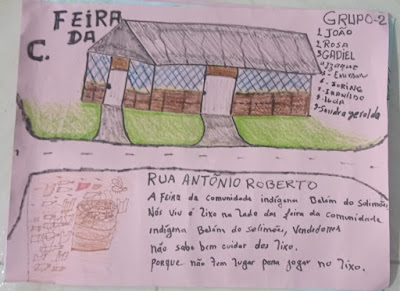 FEIRA
DA
C.
GRUPO-2
1 JOÃO
2 ROSA
3 GADIEL
6- SURING
7- IRANILDO
8- LUCIA
9- Sandra geralda
RUA ANTÔNIO ROBERTO
A Feira da comunidade indígena Belém do Solimões,
Nós viu é lixo no lado das feira da comunidade
indígena Belém do solimões, Vendedores
não sabe bem cuidar dos lixo.
PORQUE não tem lugar para jogar no lixo.